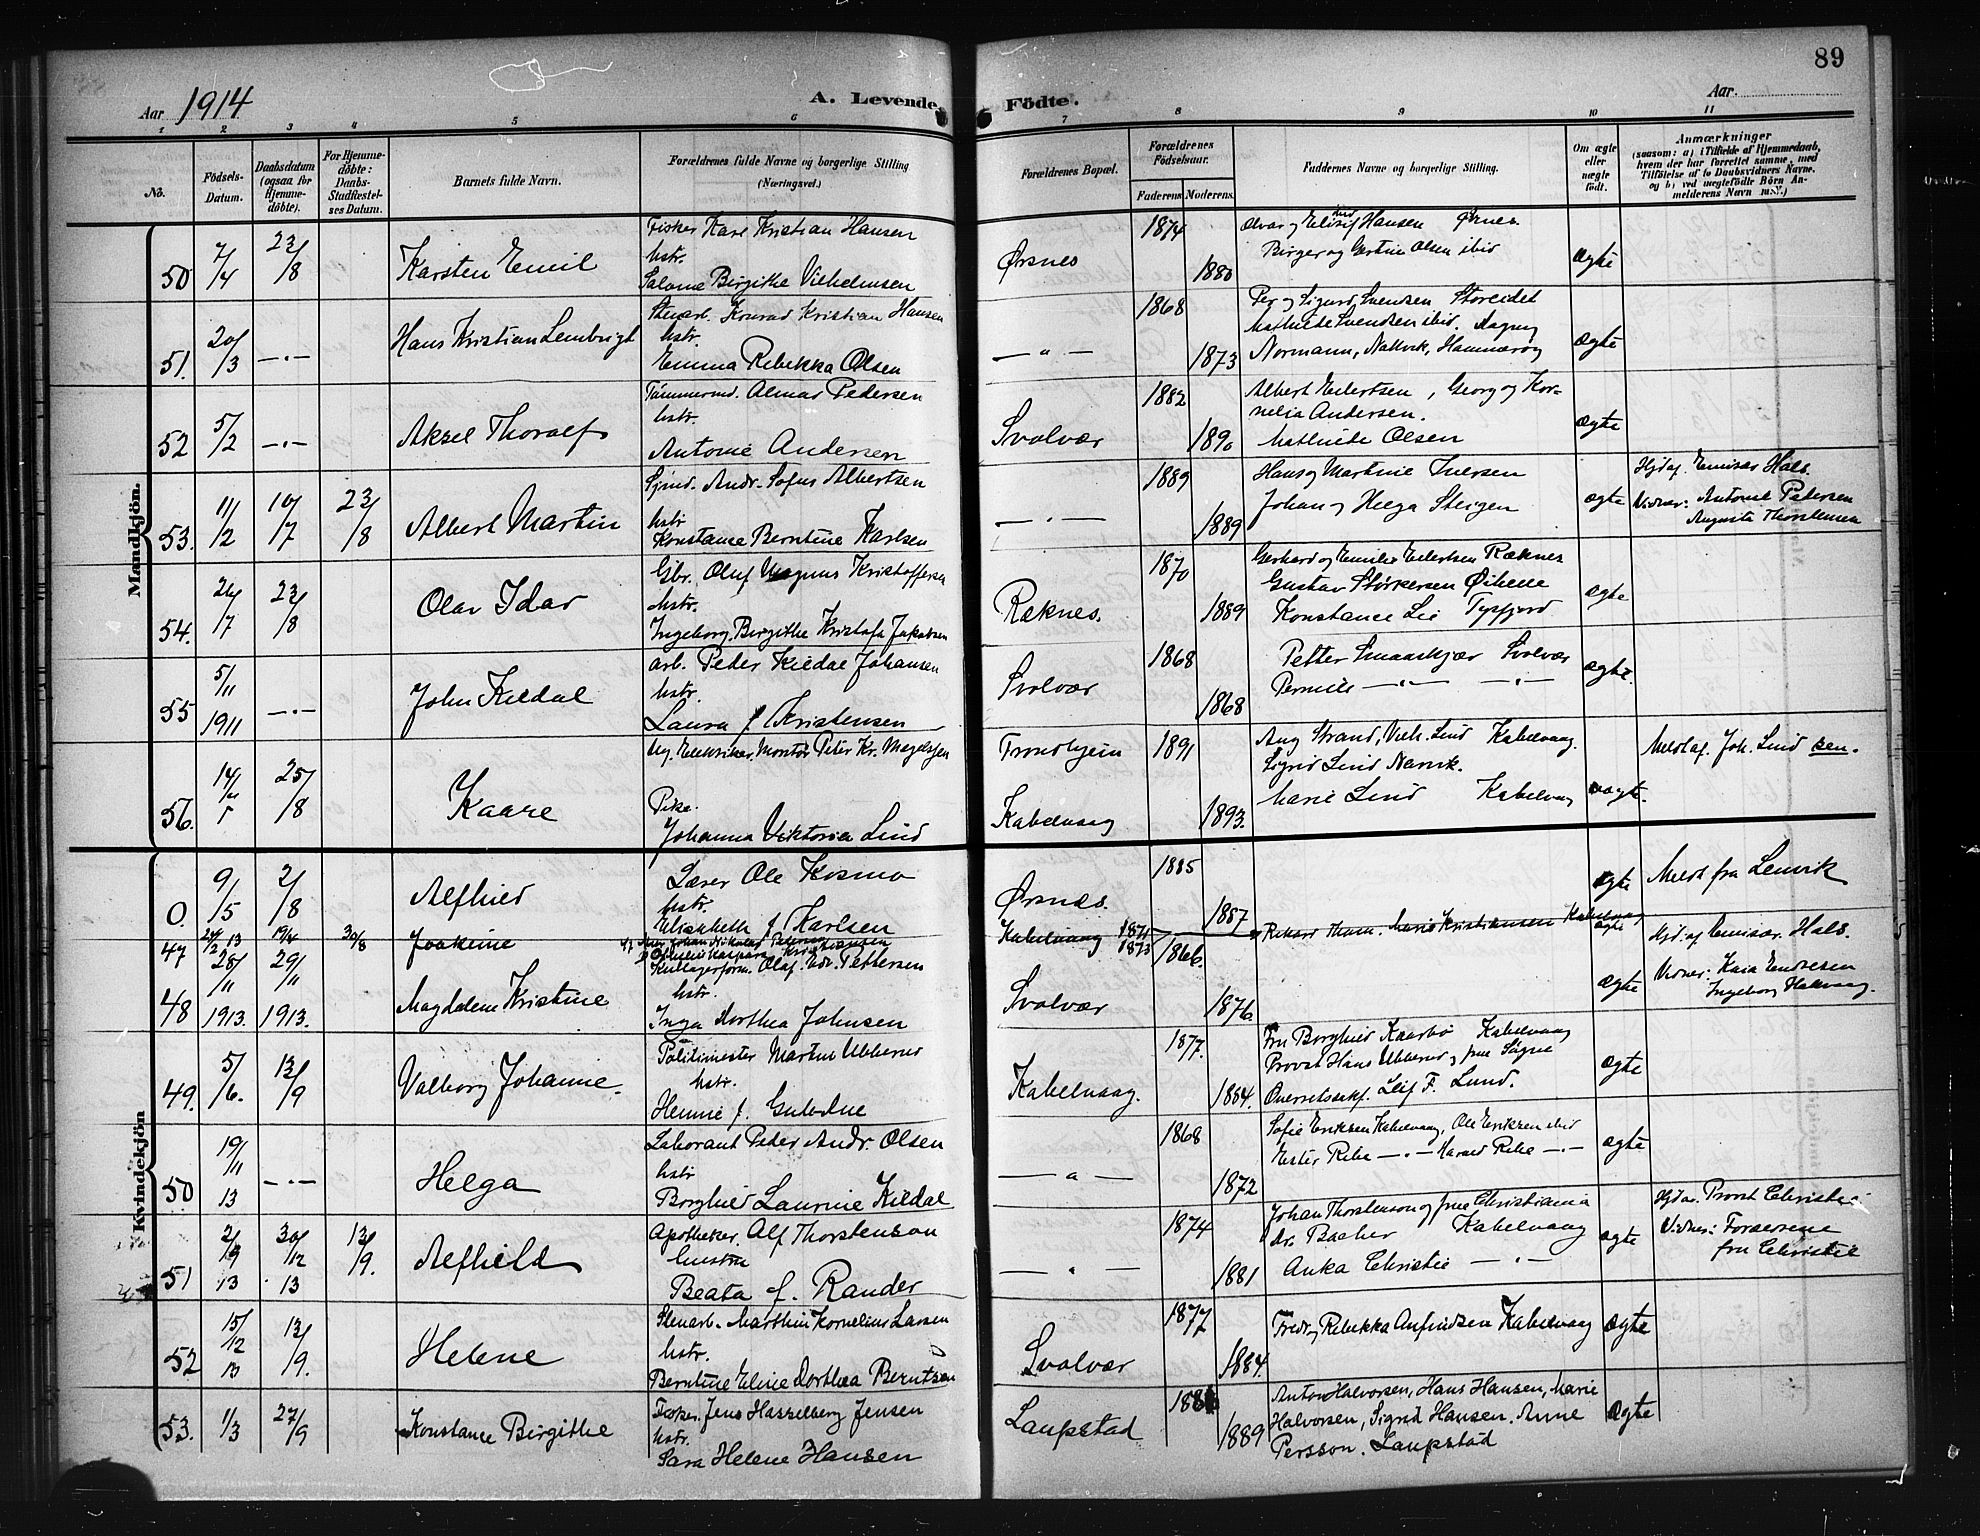 89
Aar 1914
A. Levende
Födte.
Aar
1 2 3 4 5 6 7 8 9 10 11
No.
Födsels-Datum.
Daabsdatum (ogsaa for Hjemme-döbte).
For Hjemme-döbte: Daabs-Stadfæstel-ses Datum.
Barnets fulde Navn.
Forældrenes fulde Navne og borgerlige Stilling (Næringsvei.)
Forældrenes Bopæl.
Forældrenes Födselsaar.
Faderens Moderens.
Faddernes Navne og borgerlige Stilling.
Om ægte eller uægte födt.
Anmærkninger
(saasom: a) i Tilfælde af Hjemmedaab, hvem der har forrettet samme, med Tilföielse af to Daabsvidners Navne, og b) ved uægtefödte Börn An-melderens Navn m. v.)
Mandkjön.
50. 7/4 23/8 Karsten Emil
Fisker Kare Kristian Hansen
hstr.
Salome Birgithe Vilhelmsen
Ørsnes 1874 1880
Hansen Ørsnes
Birger og Olsen ibid
ægte
51. 20/3 — " — Hans Kristian Lembrigt
Stenarb. Konrad Kristian Hansen
hstr.
Emma Rebekka Olsen
— " — 1868 1873
Per og Sigurd Svendsen Storeidet
Mathilde Svendsen ibid. Dagny
Normann, Nattvik, Hammerøy
ægte
52 5/2 — " — Aksel Thoralf
Tømmermd. Almar Pedersen
hstr.
Antonie Andersen
Svolvær 1882 1890
Albert Eilertsen, Georg og Kor-
nelia Andersen.
Mathilde Olsen
ægte
53. 11/2 10/7 23/8 Albert Martin
Sjmd. Andr. Sofus Albertsen
hstr
Konstanse Berntine Karlsen
— " — 1889 1889
Hans og Martine Iversen
Johan og Helga Steigen
ægte
Hjd af. Emissær Hals.
Vidner: Antonie Pedersen
Augusta Thorstensen
54. 26/7 23/8 Olav Idar
Gbr. Oluf Magnus Kristoffersen
hstr.
Ingeborg Birgithe Kristofa Jakobsen
Reknes. 1870 1889
Gerhard og Emilie Eilertsen Reknes
Gustav Størkersen Øihelle
Konstance Lie Tysfjord
ægte
55 5/11 1911 — " — John Kildal
arb. Peder Kildal Johansen
hstr.
Laura f. Kristensen
Svolvær 1868 1868
Petter Smaaskjær Svolvær
Pernille — " — — " —
ægte.
56. 14/5 25/8 Kaare
Elektriker Montør Peter Kr. Magelssen
Pike
Johanna Viktoria Lind
Trondhjem 1891
Kabelvaag 1893.
Aug Strand, Vilh. Lind Kabelvaag.
Sigrid Lind Narvik.
Marie Lind Kabelvaag
uægte.
Meldt af. Joh. Lind sen.
Kvindekjön
0. 9/5 2/8 Alfhild
Lærer Ole Kosmo
hstr.
Elisabeth f. Karlsen
Ørsnes. 1885 1887
ægte
Meldt fra Lenvik
47 24/2 13 19/4 30/8 Joakime
Johan Nikolai Petersen
Kaspara Kristiansen
Kabelvaag 1871 1873
Rikard Thom. Marie Kristiansen Kabelvaag
ægte
Hjd. af Emissær Hals.
48 28/11 1913. 29/11 1913. Magdalene Kristine
Kullagerform. Olaf Edv. Pettersen
hstr.
Inga Dorthea Johnsen
Svolvær 1866. 1876.
ægte
Vidner: Kaia Endresen
Ingeborg Hakvaag.
49. 5/6. 13/9 Valborg Johanne
Politimester Martin Ebberød
hstr.
Hennie f. Gulodne
Kabelvaag. 1877. 1884.
Fru Borghild Kaarbø Kabelvaag
Provst Hans og frue Søgne
Overretssakf. Leif F. Lund.
ægte
50 19/11 13 — " — Helga
Laborant Peter Andr. Olsen
hstr
Borghild Laurnie Kildal
— " — 1868 1872
Sofie Eriksen Kabelvaag, Ole Eriksen ibid
Ester Ribe — " — Harald Ribe — " —
ægte
51 2/9 13 30/12 13 13/9. Alfhild
Apotheker. Alf Thorstenson
hustru
Beata f. Rander
— " — 1874 1881
Johan Thorstenson og frue Christiania
dr. Bacher Kabelvaag
Anka Christie — " —
ægte
Hjd av. Provst Christie
Vidner: Forældrene
fru Christie
52 15/12 13 13/9. Helene
Stenarb. Marthin Kornelius Larsen
hstr.
Berntine Eline Dorthea Berntsen
Svolvær 1877 1884.
Fredr og Rebekka Anfindsen Kabelvaag
ægte
53. 1/3 27/9 Konstanse Birgithe
Fisker. Jens Hasselberg Jensen
hstr.
Sara Helene Hansen
Laupstad 1889
Anton Halvorsen, Hans Hansen, Marie
Halvorsen, Sigrid Hansen. Anne
Persson. Laupstad
ægte